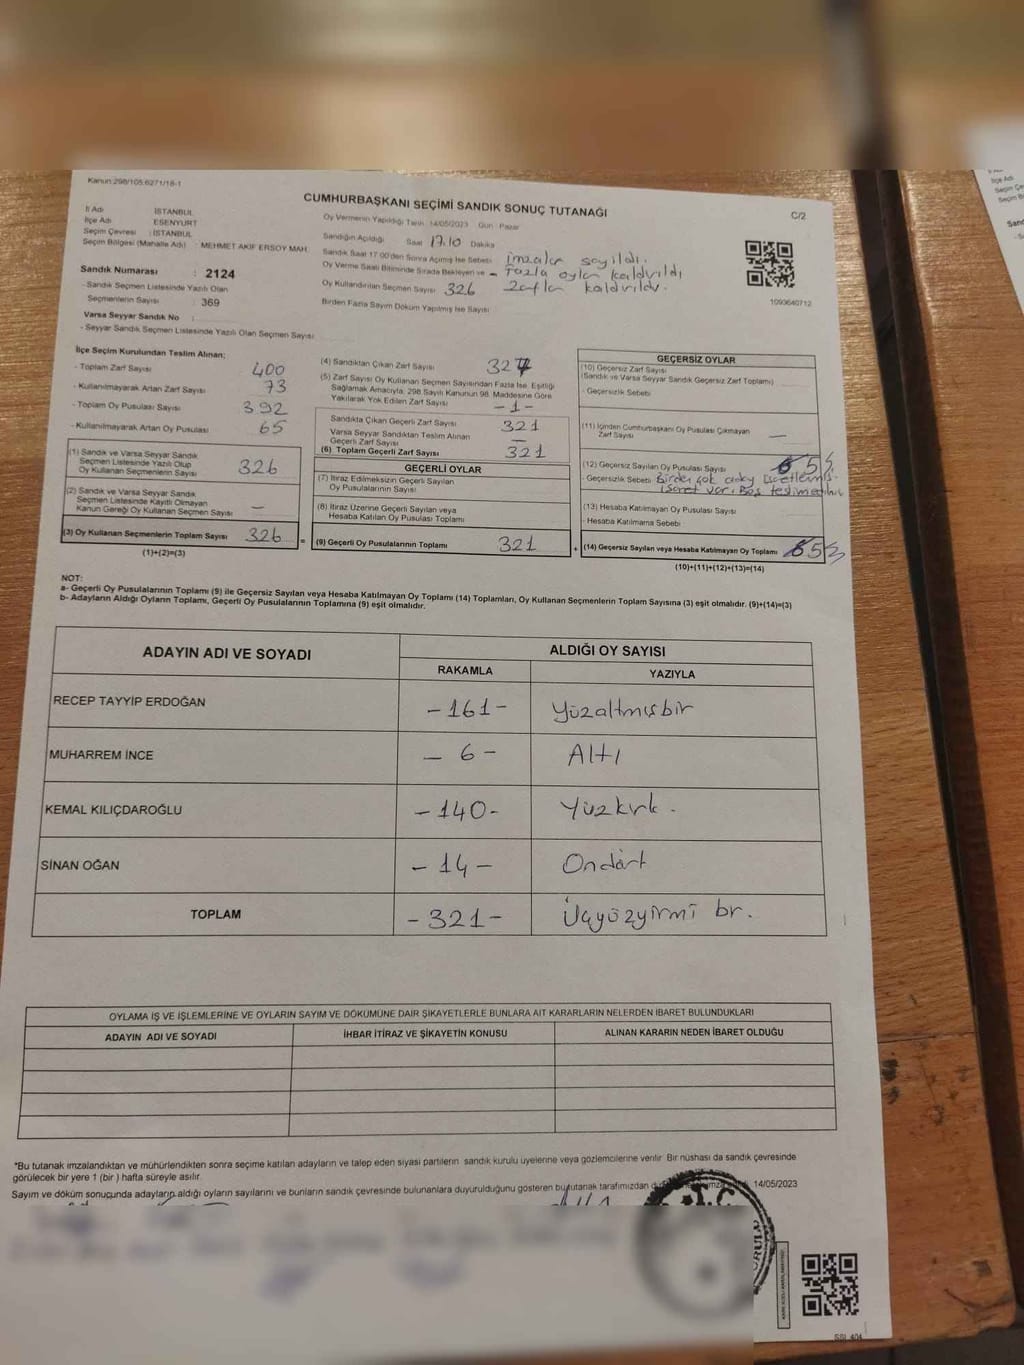 Kanun:298/105;6271/18-1
CUMHURBAŞKANI SEÇİMİ SANDIK SONUÇ TUTANAĞI
C/2
İl Adı : İSTANBUL
İlçe Adı : ESENYURT
Seçim Çevresi : İSTANBUL
Seçim Bölgesi (Mahalle Adı) : MEHMET AKİF ERSOY MAH.
Sandık Numarası : 2124
- Sandık Seçmen Listesinde Yazılı Olan
Seçmenlerin Sayısı : 369
Varsa Seyyar Sandık No :
- Seyyar Sandık Seçmen Listesinde Yazılı Olan Seçmen Sayısı :
Oy Vermenin Yapıldığı Tarih 14/05/2023 Gün : Pazar
Sandığın Açıldığı Saat 17.10 Dakika
Sandık Saat 17.00'den Sonra Açımış İse Sebebi imzalar sayıldı.
Oy Verme Saati Bitiminde Sırada Bekleyen ve – Fazla oylar kaldırıldı
Oy Kullandırılan Seçmen Sayısı 326 zaflar kaldırıldı.
Birden Fazla Sayım Döküm Yapılmış İse Sayısı
1093640712
İlçe Seçim Kurulundan Teslim Alınan;
- Toplam Zarf Sayısı 400
- Kullanılmayarak Artan Zarf Sayısı 73
- Toplam Oy Pusulası Sayısı 392
- Kullanılmayarak Artan Oy Pusulası 65
(1) Sandık ve Varsa Seyyar Sandık
Seçmen Listesinde Yazılı Olup
Oy Kullanan Seçmenlerin Sayısı 326
(2) Sandık ve Varsa Seyyar Sandık
Seçmen Listesinde Kayıtlı Olmayan
Kanun Gereği Oy Kullanan Seçmen Sayısı –
(3) Oy Kullanan Seçmenlerin Toplam Sayısı 326
(1)+(2)=(3)
(4) Sandıktan Çıkan Zarf Sayısı 327
(5) Zarf Sayısı Oy Kullanan Seçmen Sayısından Fazla İse, Eşitliği
Sağlamak Amacıyla, 298 Sayılı Kanunun 98. Maddesine Göre
Yakılarak Yok Edilen Zarf Sayısı -1-
Sandıkta Çıkan Geçerli Zarf Sayısı 321
Varsa Seyyar Sandıktan Teslim Alınan
Geçerli Zarf Sayısı –
(6) Toplam Geçerli Zarf Sayısı 321
GEÇERLİ OYLAR
(7) İtiraz Edilmeksizin Geçerli Sayılan
Oy Pusulalarının Sayısı
(8) İtiraz Üzerine Geçerli Sayılan veya
Hesaba Katılan Oy Pusulası Toplamı
= (9) Geçerli Oy Pusulalarının Toplamı 321
GEÇERSİZ OYLAR
(10) Geçersiz Zarf Sayısı
(Sandık ve Varsa Seyyar Sandık Geçersiz Zarf Toplamı)
- Geçersizlik Sebebi
(11) İçinden Cumhurbaşkanı Oy Pusulası Çıkmayan
Zarf Sayısı —
(12) Geçersiz Sayılan Oy Pusulası Sayısı 5
- Geçersizlik Sebebi Birden çok aday
işaret var. Boş
(13) Hesaba Katılmayan Oy Pusulası Sayısı
- Hesaba Katılmama Sebebi
+ (14) Geçersiz Sayılan veya Hesaba Katılmayan Oy Toplamı 5
(10)+(11)+(12)+(13)=(14)
NOT:
a- Geçerli Oy Pusulalarının Toplamı (9) ile Geçersiz Sayılan veya Hesaba Katılmayan Oy Toplamı (14) Toplamları, Oy Kullanan Seçmenlerin Toplam Sayısına (3) eşit olmalıdır. (9)+(14)=(3)
b- Adayların Aldığı Oyların Toplamı, Geçerli Oy Pusulalarının Toplamına (9) eşit olmalıdır.
ADAYIN ADI VE SOYADI
ALDIĞI OY SAYISI
RAKAMLA YAZIYLA
RECEP TAYYİP ERDOĞAN -161- Yüzaltmışbir
MUHARREM İNCE - 6 - Altı
KEMAL KILIÇDAROĞLU -140- Yüzkırk.
SİNAN OĞAN -14- Ondört
TOPLAM -321- Üçyüzyirmi bir.
OYLAMA İŞ VE İŞLEMLERİNE VE OYLARIN SAYIM VE DÖKÜMÜNE DAİR ŞİKAYETLERLE BUNLARA AİT KARARLARIN NELERDEN İBARET BULUNDUKLARI
ADAYIN ADI VE SOYADI İHBAR İTİRAZ VE ŞİKAYETİN KONUSU ALINAN KARARIN NEDEN İBARET OLDUĞU
*Bu tutanak imzalandıktan ve mühürlendikten sonra seçime katılan adayların ve talep eden siyasi partilerin sandık kurulu üyelerine veya gözlemcilerine verilir. Bir nüshası da sandık çevresinde
görülecek bir yere 1 (bir ) hafta süreyle asılır.
Sayım ve döküm sonucunda adayların aldığı oyların sayılarını ve bunların sandık çevresinde bulunanlara duyurulduğunu gösteren bu tutanak tarafımızdan 14/05/2023
T.C.
SSİ 404